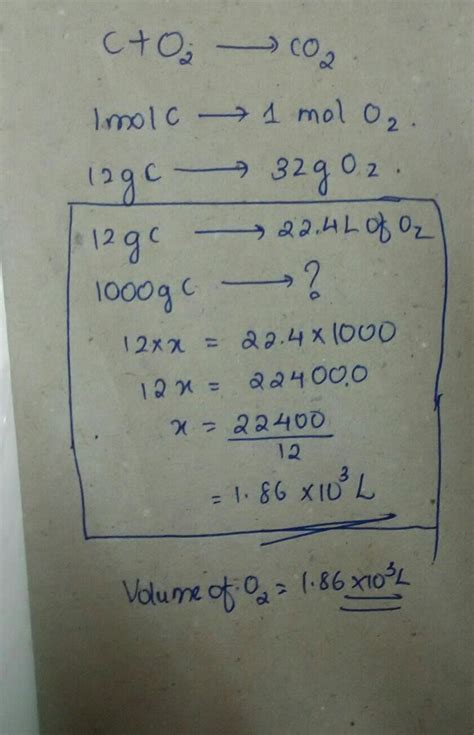 C + O₂ ⟶ CO₂
1 mol C ⟶ 1 mol O₂.
12 g C ⟶ 32 g O₂.
12 g C ⟶ 22.4 L of O₂
1000 g C ⟶ ?
12 × x = 22.4 × 1000
12 x = 22400.0
x = 22400 / 12
= 1.86 × 10³ L
Volume of O₂ = 1.86 × 10³ L